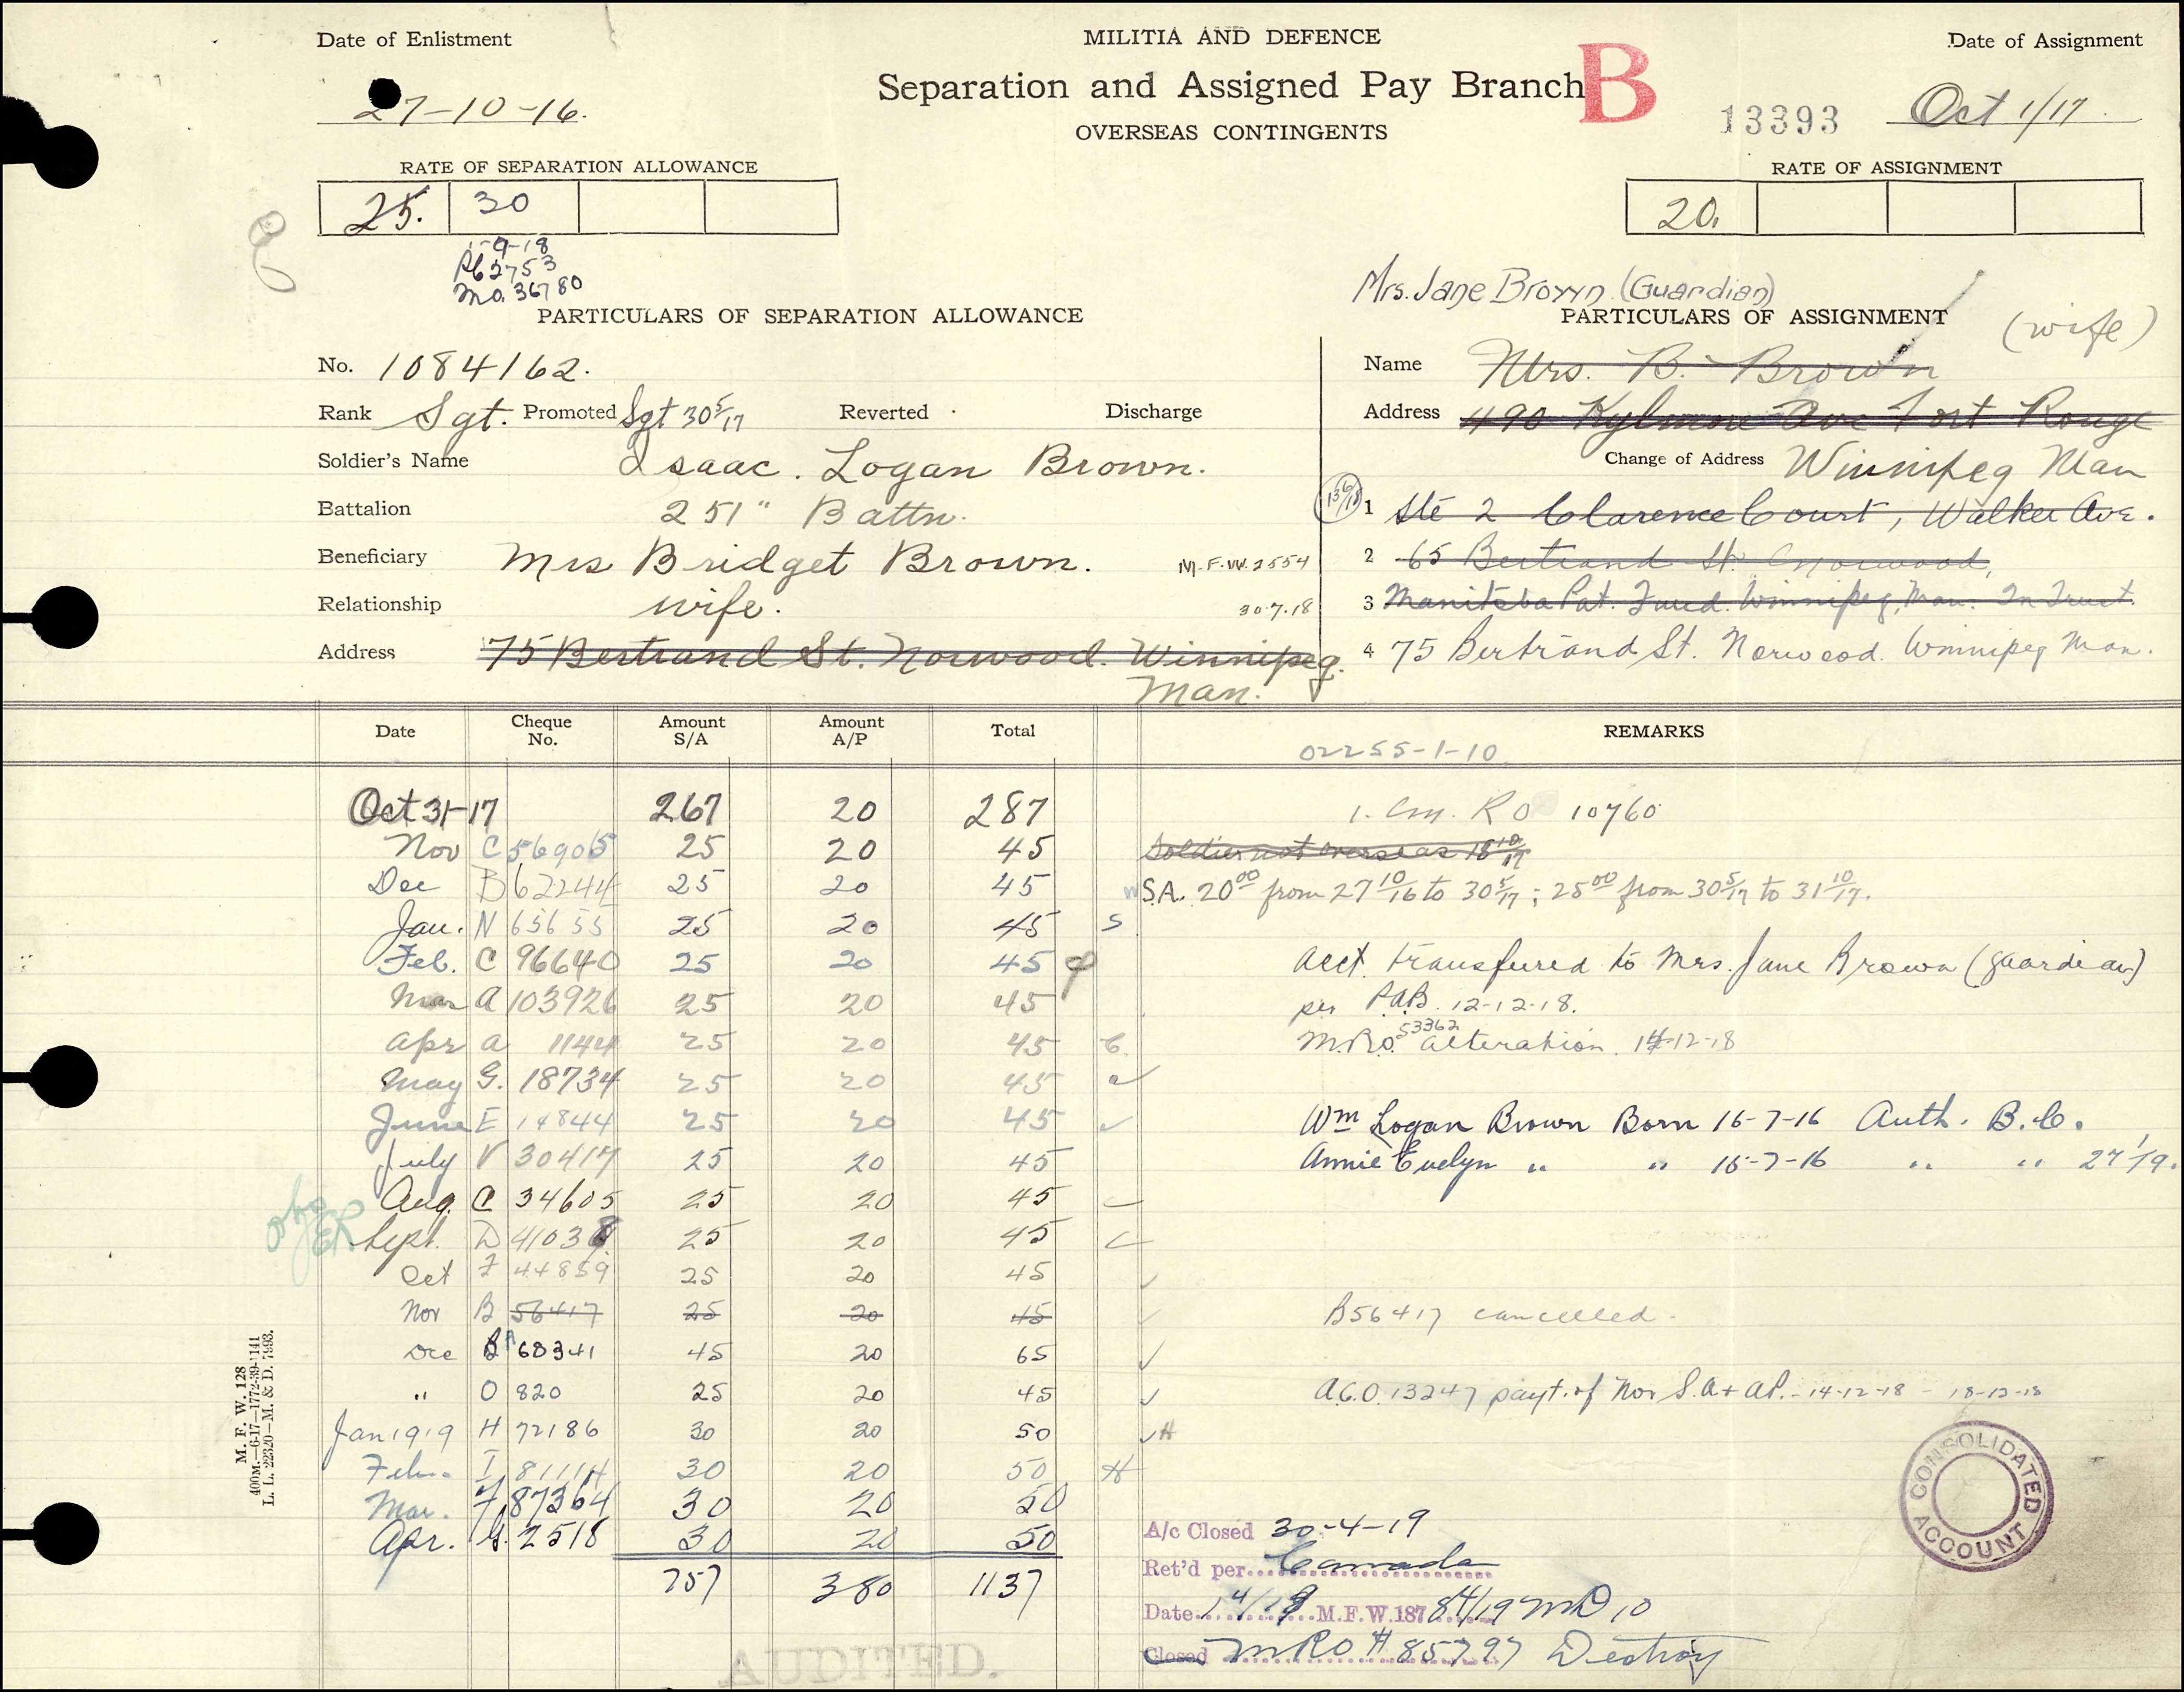 Date of Enlistment
27-10-16.
MILITIA AND DEFENCE
Separation and Assigned Pay Branch
B
OVERSEAS CONTINGENTS
13393
Date of Assignment
Oct 1/17.
RATE OF SEPARATION ALLOWANCE
25. 30
1-9-18
Pb 2753
M.O. 36780
RATE OF ASSIGNMENT
20.
PARTICULARS OF SEPARATION ALLOWANCE
No. 1084162.
Rank Sgt. Promoted Sgt 30 5/17 Reverted Discharge
Soldier's Name Isaac. Logan Brown.
Battalion 251" Battn.
Beneficiary Mrs Bridget Brown. M.F.W. 2554
Relationship wife. 30.7.18
Address 75 Bertrand St. Norwood. Winnipeg.
Man.
Mrs. Jane Brown (Guardian)
PARTICULARS OF ASSIGNMENT
(wife)
Name Mrs. B. Brown
Address 490 Kylmore Ave Fort Rouge
Change of Address Winnipeg Man
1 Ste 2 Clarence Court, Walker Ave.
2 65 Bertrand St. Norwood,
3 Manitoba Pat. Fund. Winnipeg, Man. In Trust.
4 75 Bertrand St. Norwood. Winnipeg Man.
Date Cheque No. Amount S/A Amount A/P Total REMARKS
02255-1-10
Oct 31-17 267 20 287 10760
Nov C 56906 25 20 45 Soldier not overseas 18 10/17
Dec B 62244 25 20 45 S.A. 20 00 from 27 10/16 to 30 5/17; 25 00 from 30 5/17 to 31 10/17.
Jan. N 65655 25 20 45 S
Feb. C 96640 25 20 45 acct. transfured to Mrs. Jane Brown (guardian)
Mar A 103926 25 20 45 per P.A.B. 12-12-18.
Apr a 1144 25 20 45 M.R.O. 53362 alteration. 14-12-18
May G. 18734 25 20 45
June E 14844 25 20 45 Wm Logan Brown Born 16-7-16 Auth. B.C.
July V 30417 25 20 45 Annie Evelyn " " 16-7-16 " " 27/1/19.
Aug. C 34605 25 20 45
Sept. D 41038 25 20 45
Oct F 44859 25 20 45
Nov B 56417 25 20 45 B56417 cancelled.
Dec 68341 45 20 65
" O 820 25 20 45 A.C.O. 13247 payt. of Nov S.A + AP. - 14-12-18 - 18-12-18
Jan 1919 H 72186 30 20 50
Feb I 81114 30 20 50
Mar. 87364 30 20 50
Apr. G. 2518 30 20 50
757 380 1137
A/c Closed 30-4-19
Ret'd per Canada
Date M.F.W. 187 MD 10
Closed MRO # 85797 Destroy
CONSOLIDATED ACCOUNT
AUDITED.
M. F. W. 128
400M.—6-17—1772-39-1141
L. L. 22320—M. & D. 7993.